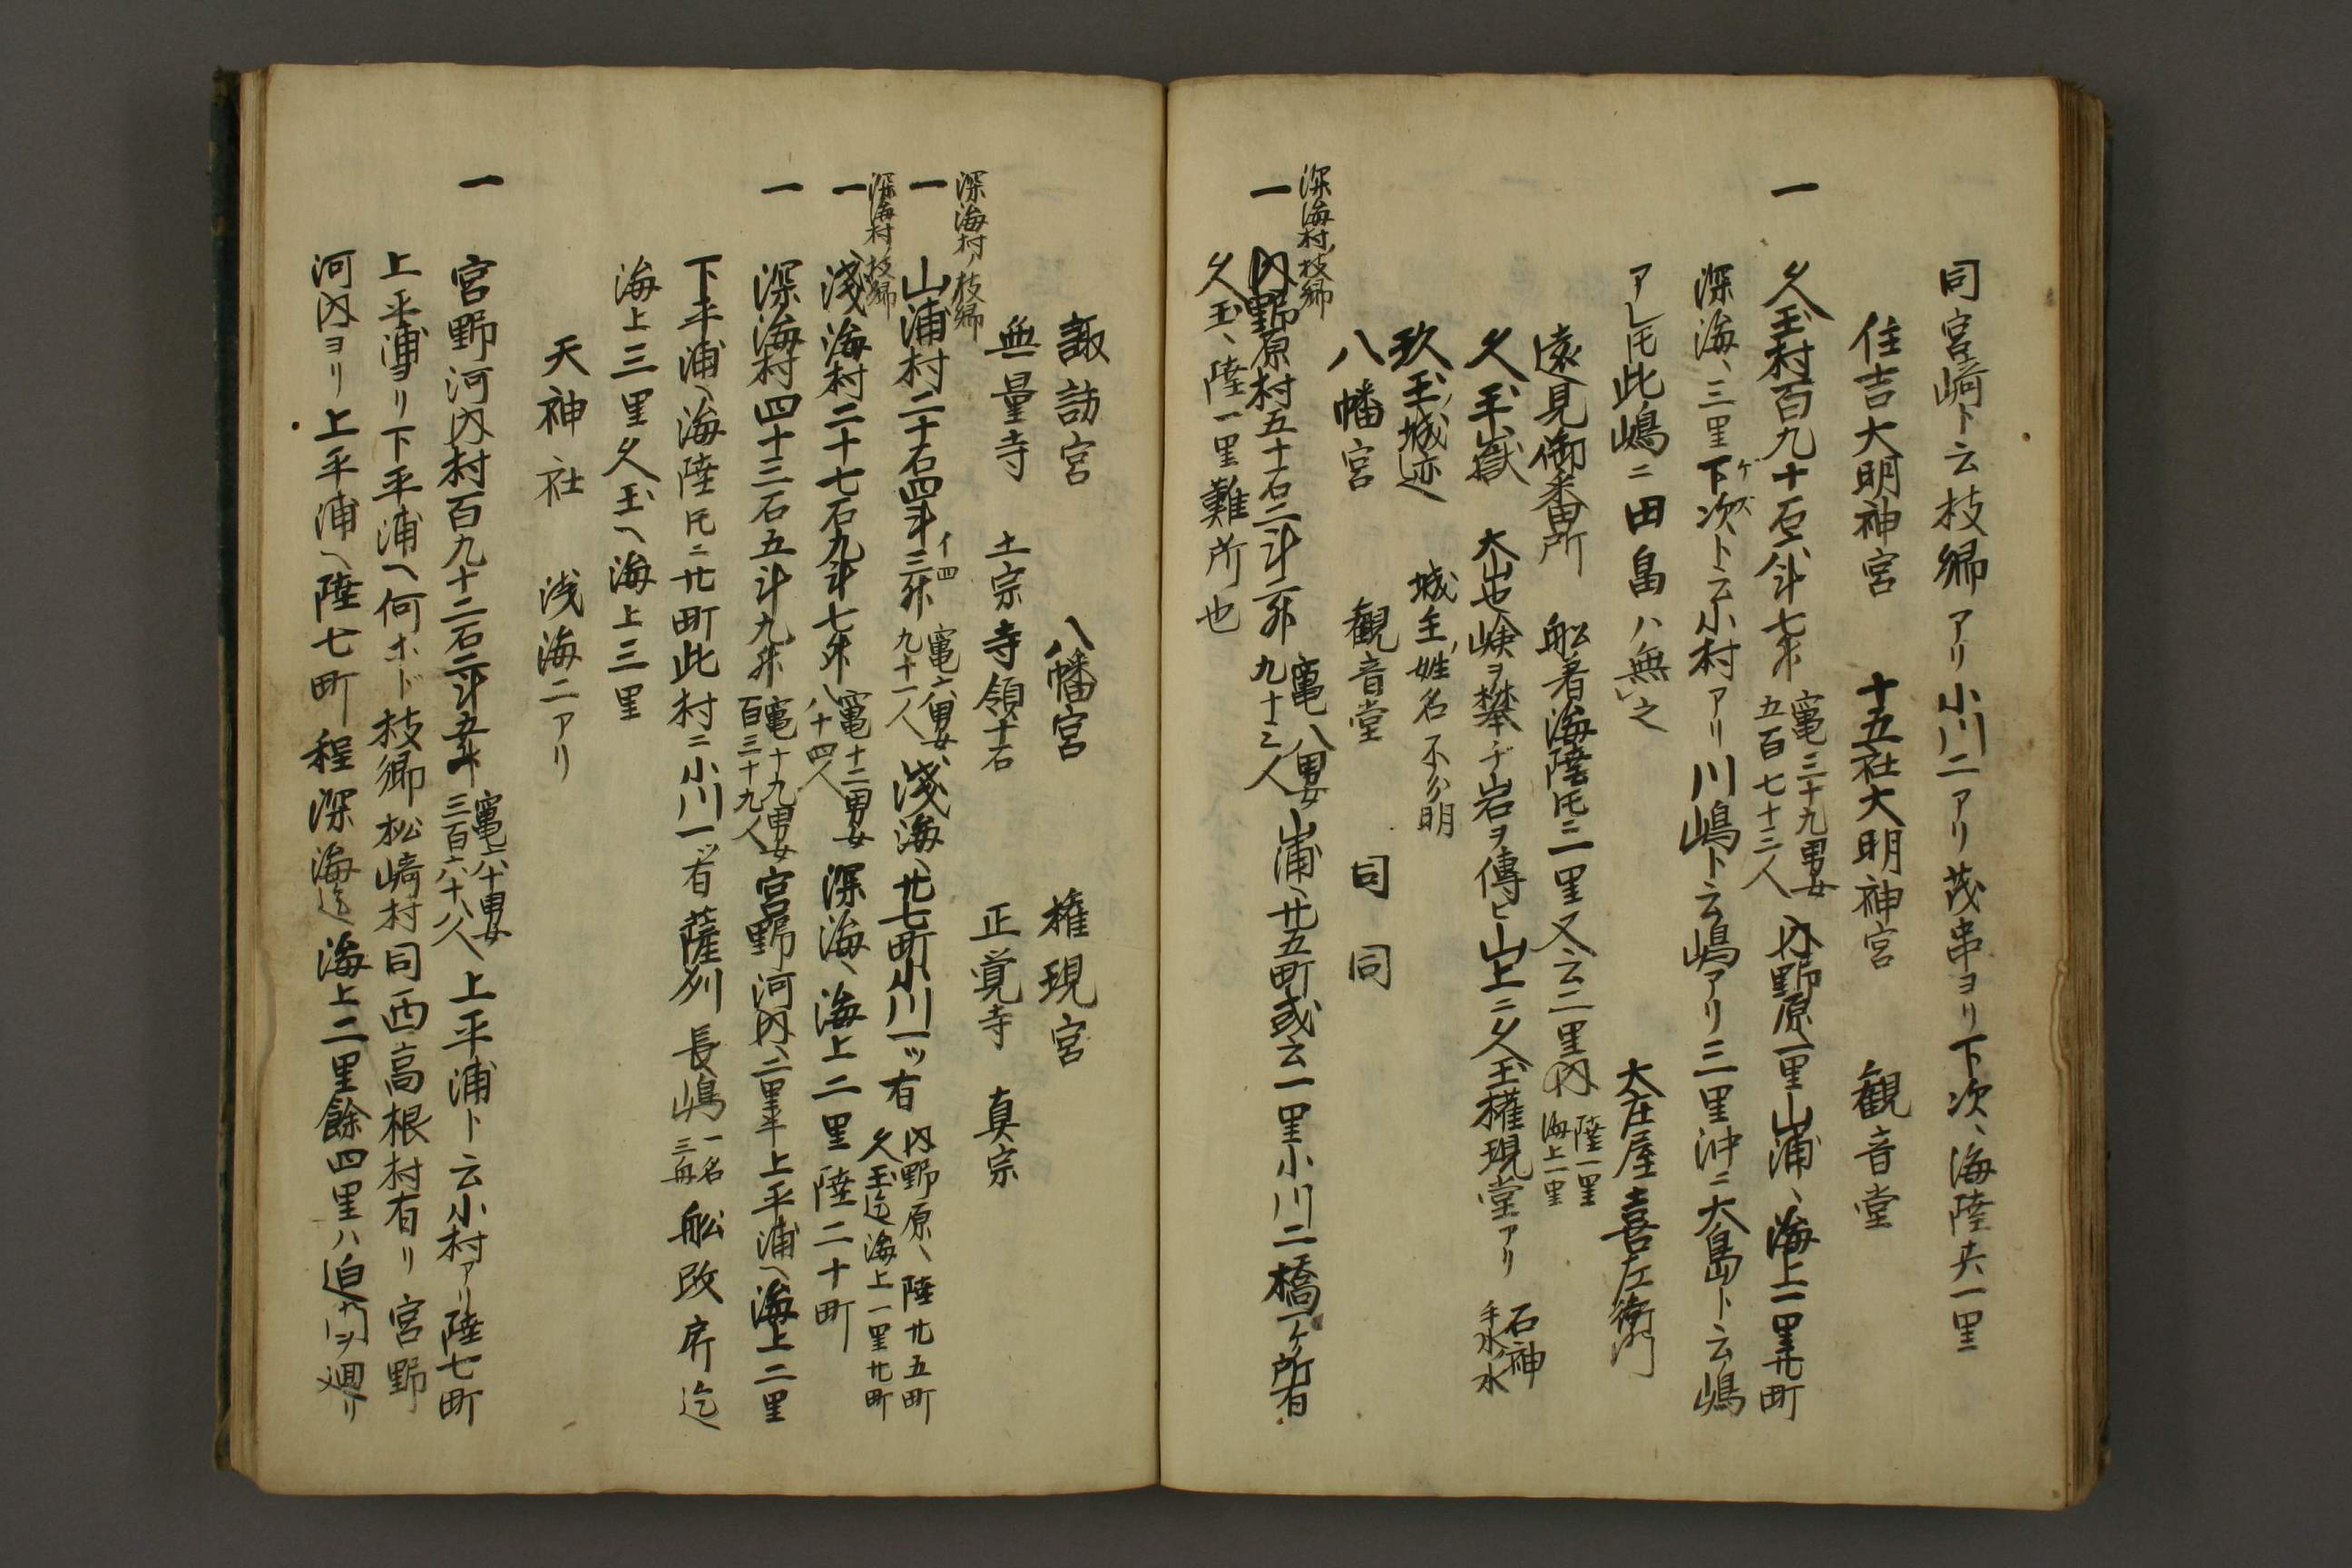 同宮﨑ト云枝郷アリ小川二アリ茂串ヨリ下次ヘ海陸共一里
住吉大明神宮　十五社大明神宮　観音堂
一　久玉村百九十石八斗七升　竃三十九男女五百七十三人　内野原ヘ一里山浦ヘ海上一里廿町
深海ヘ三里下次ト云小村アリ川嶋ト云嶋アリ三里沖ニ大島ト云嶋
ケス
アレ𪜈此嶋ニ田畠ハ無之　大庄屋喜左衛門
遠見御番所　船着海陸𪜈二里又云二里内　陸一里海上一里
久玉嶽　大岩也嶮ヲ攀ヂ岩ヲ傳ヒ山上ニ久玉權現堂アリ　石神手水水
玖玉ノ城迹　城主ノ姓名不分明
八幡宮　観音堂　同　同
深海村ノ枝郷
一　内野原村五十石二斗二升　竃八男女九十三人　山浦ヘ廿五町或云一里小川二橋一ケ所有
久玉ヘ陸一里難所也
諏訪宮　八幡宮　権現宮
無量寺　土宗寺領十石　正覚寺　真宗
深海村ノ枝郷
一　山浦村二十石四斗三升　イ四　竃六男女九十一人　浅海ヘ廿七町小川一ッ有　内野原ヘ陸廿五町久玉迄海上一里廿町
深海村ノ枝郷
一　浅海村二十七石九斗七升　竃十二男女八十四人　深海ヘ海上二里陸二十町
一　深海村四十三石五斗九升　竃十九男女百三十九人　宮野河内ヘ二里半上平浦ヘ海上二里
下平浦ヘ海陸𪜈ニ廿町此村ニ小川一ッ有薩刕長嶋　一名三舟　船改所迄
海上三里久玉ヘ海上三里
天神社　浅海ニアリ
一　宮野河内村百九十二石二斗五升　竃六十男女三百六十八人　上平浦ト云小村アリ陸七町
上平浦ヨリ下平浦ヘ何ホド枝郷松﨑村同西高根村有リ宮野
河内ヨリ上平浦ヘ陸七町程深海迄海上二里餘四里ハ迫門ヲ廻リ